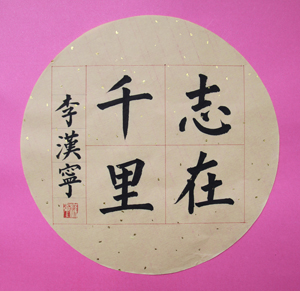 志在
千里
李漢寧